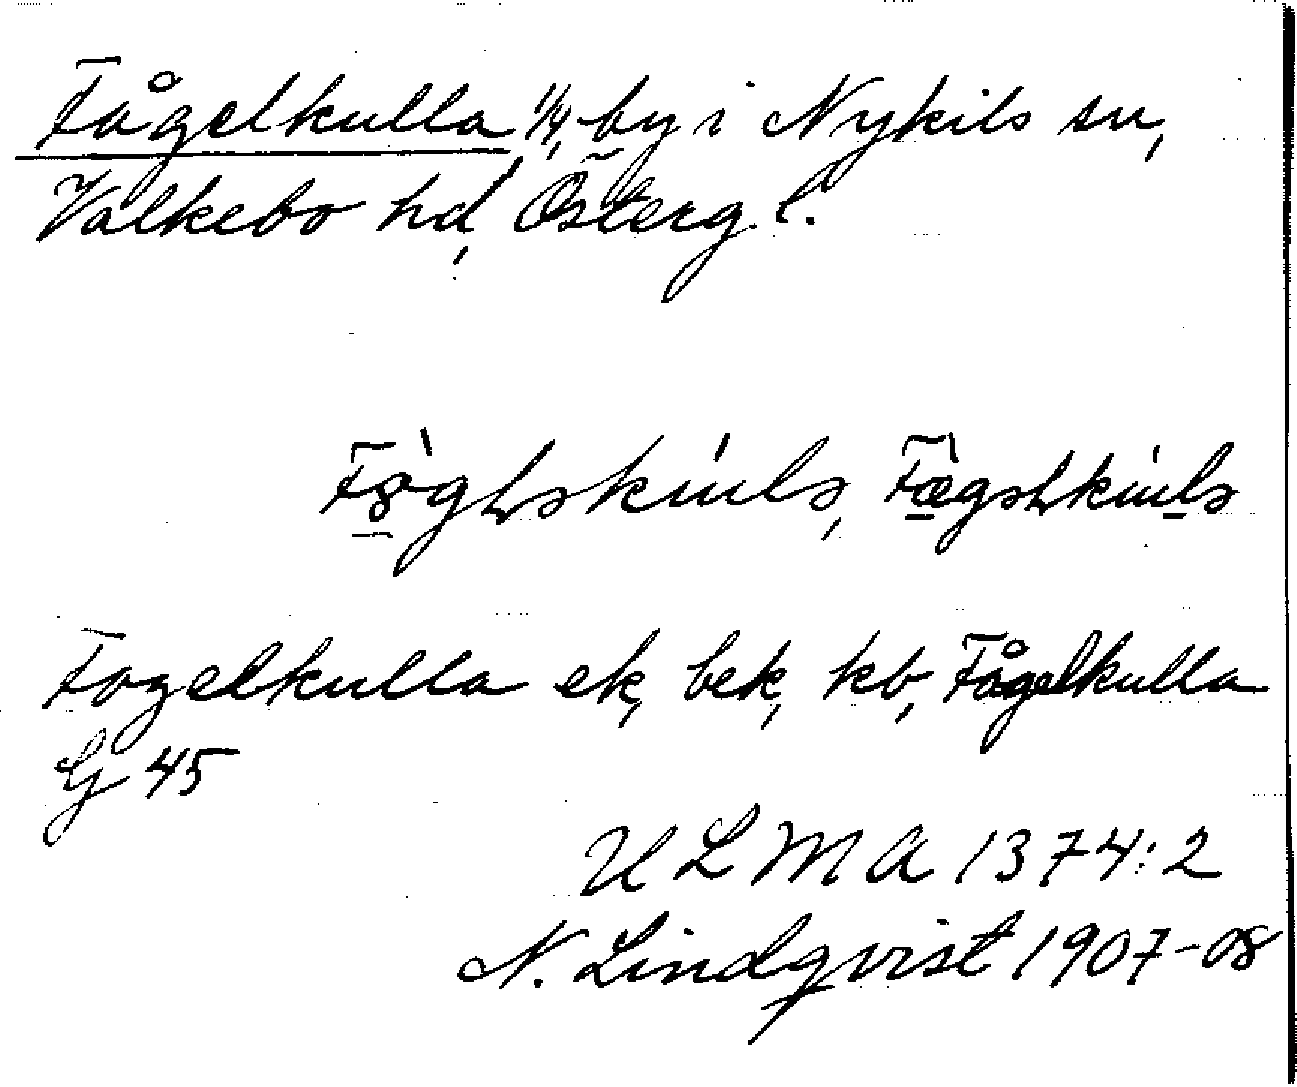 Fågelkulla 1/4, by i Nykils sn,
Valkebo hd, Österg. l.
Fogelkulla ek, bek, kb, Fågelkulla
G 45
ULMA 1374:2
N. Lindqvist 1907-08